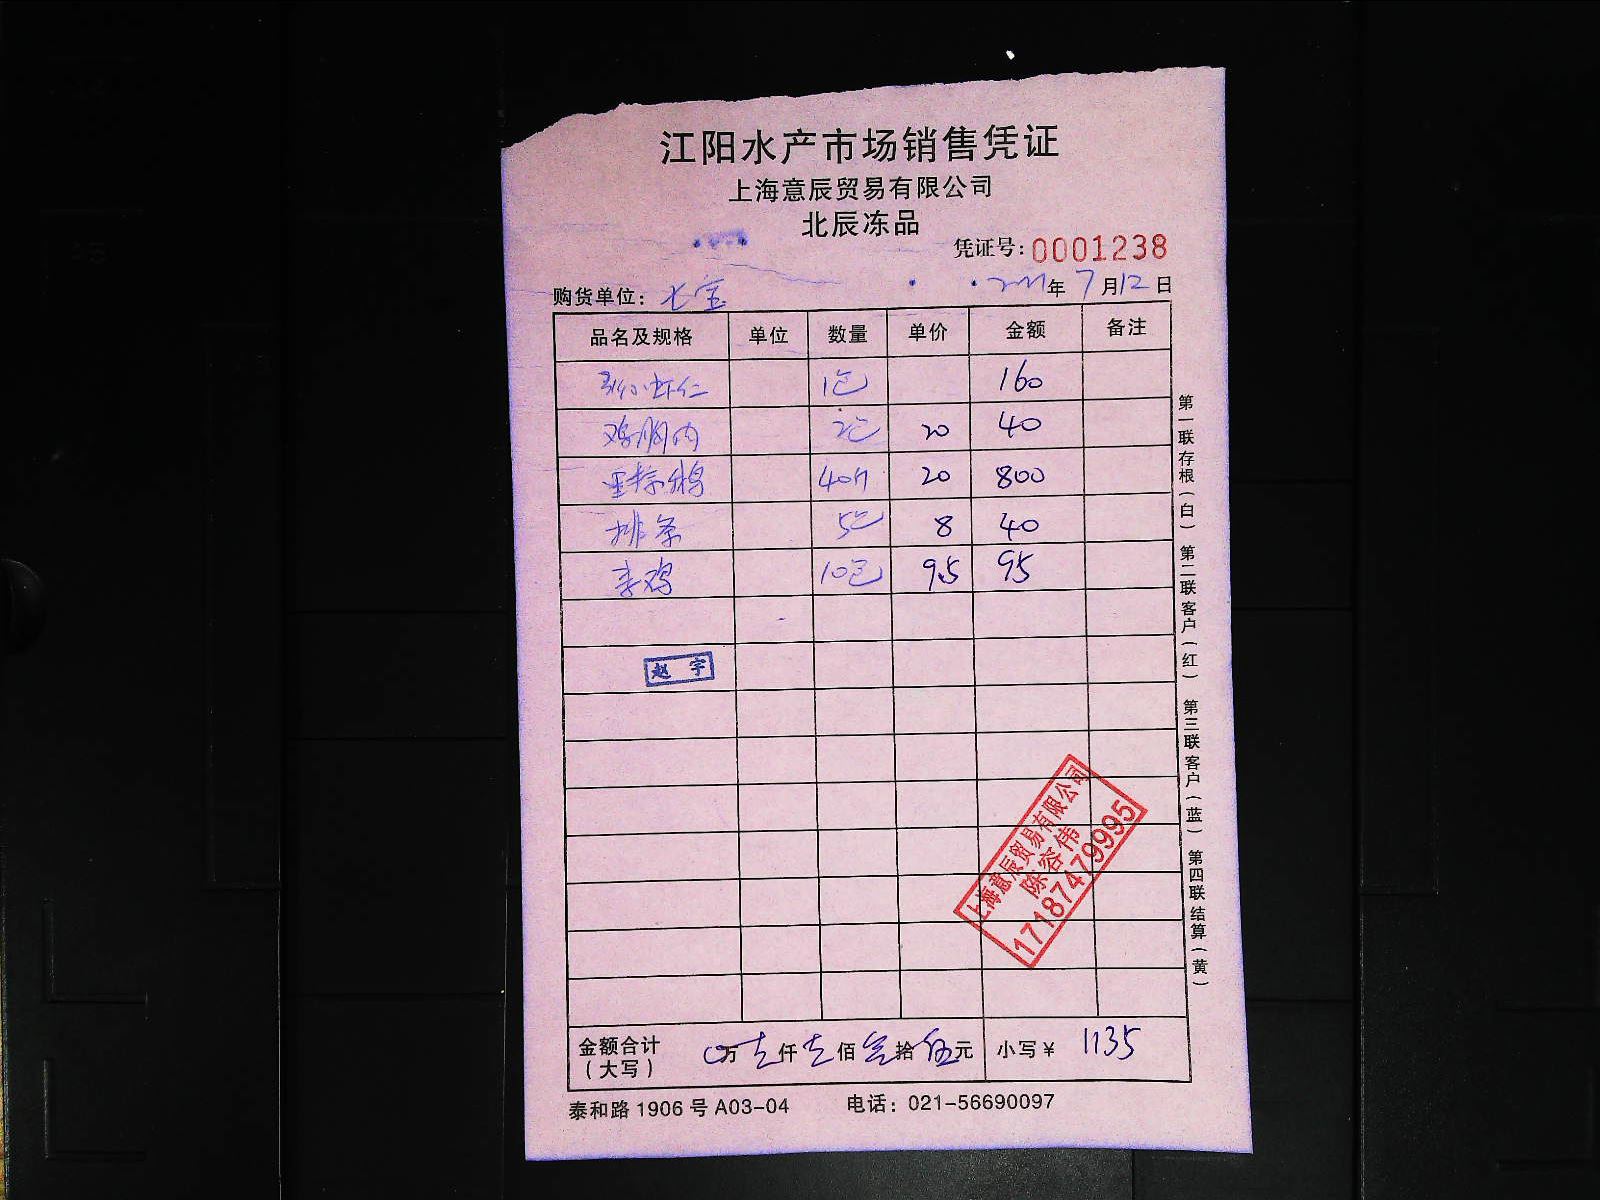 江阳水产市场销售凭证
上海意辰贸易有限公司
北辰冻品
凭证号：0001238
购货单位：七宝 年 7 月 12 日
品名及规格 单位 数量 单价 金额 备注
虾仁 1包 160
鸡胸肉 2包 20 40
40只 20 800
排条 5包 8 40
鸡 10包 9.5 95
赵宇
上海意辰贸易有限公司
陈容伟
17187479995
金额合计（大写） 0万壹仟壹佰叁拾伍元 小写￥ 1135
泰和路1906号A03-04 电话：021-56690097
第一联存根（白） 第二联客户（红） 第三联客户（蓝） 第四联结算（黄）